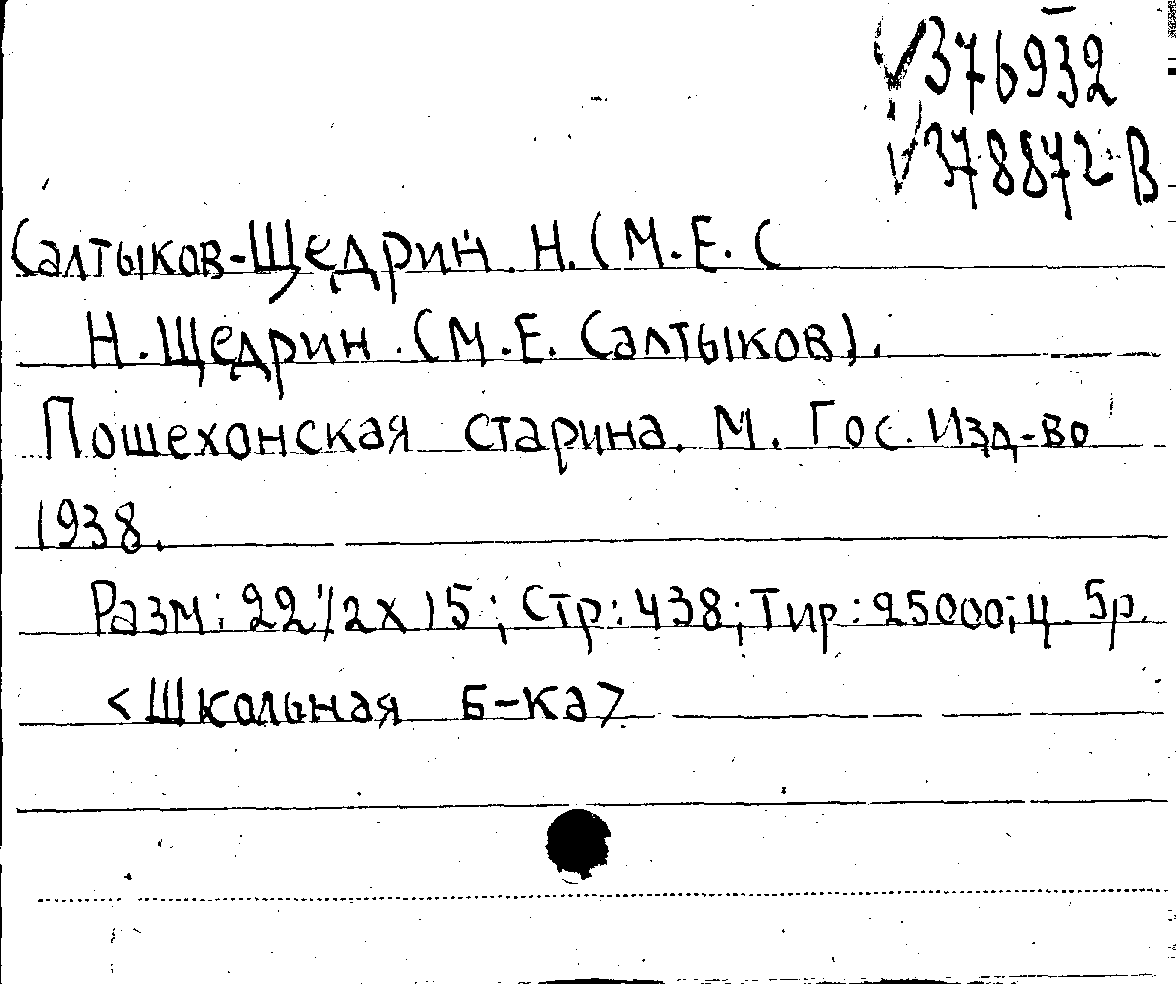 ✓376932
✓378872 В
Салтыков-Щедрин. Н. (М. Е. С
Н. Щедрин. (М. Е. Салтыков).
Пошехонская старина. М. Гос. Изд-во
1938.
Разм: 22 1/2 х 15; Стр: 438; Тир: 25000; ц. 5р.
<Школьная б-ка>